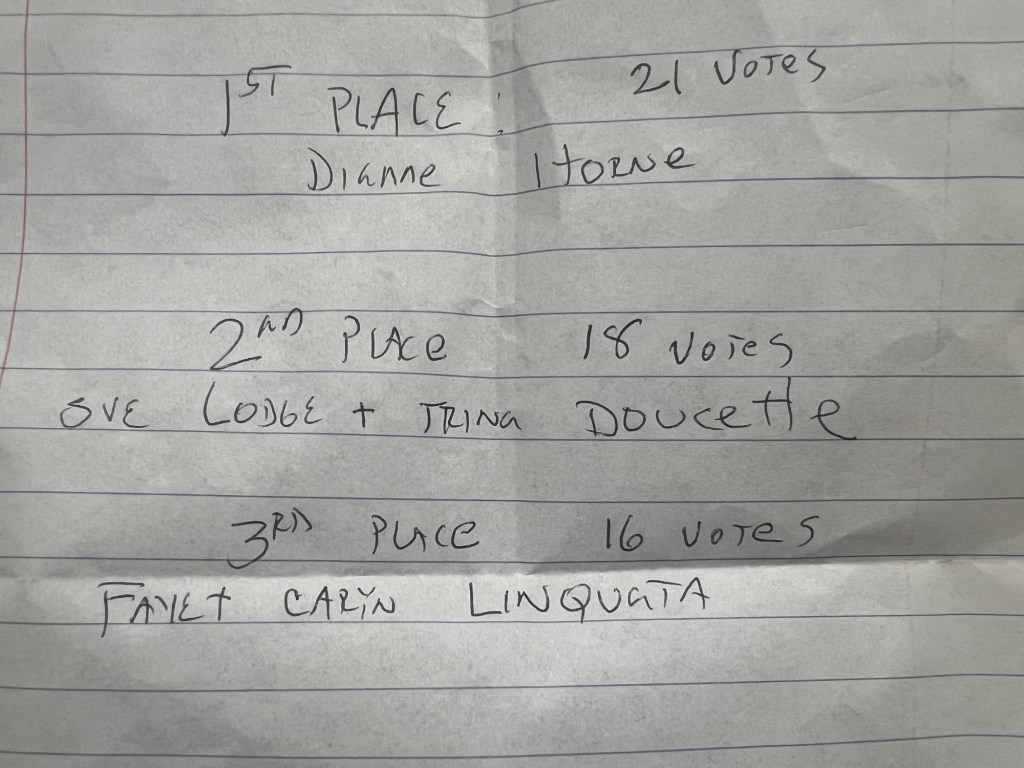 1ST PLACE : 21 VOTES
Dianne HORNE
2ND PLACE 18 VOTES
SUE LODGE + TRINA DOUCETTE
3RD PLACE 16 VOTES
FAYE + CARYN LINQUATA